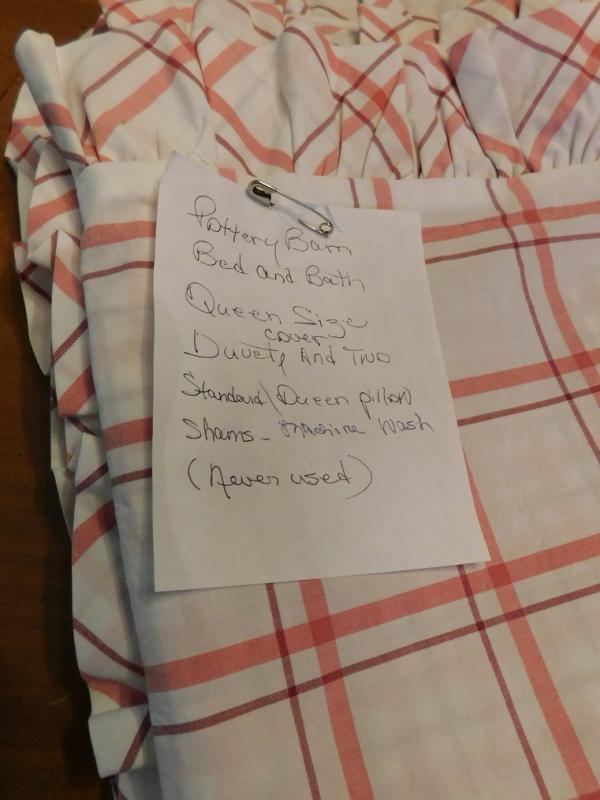 Pottery Barn
Bed and Bath
Queen Size
cover
Duvet, And Two
Standard\Queen pillow
Shams - Machine Wash
(Never used)